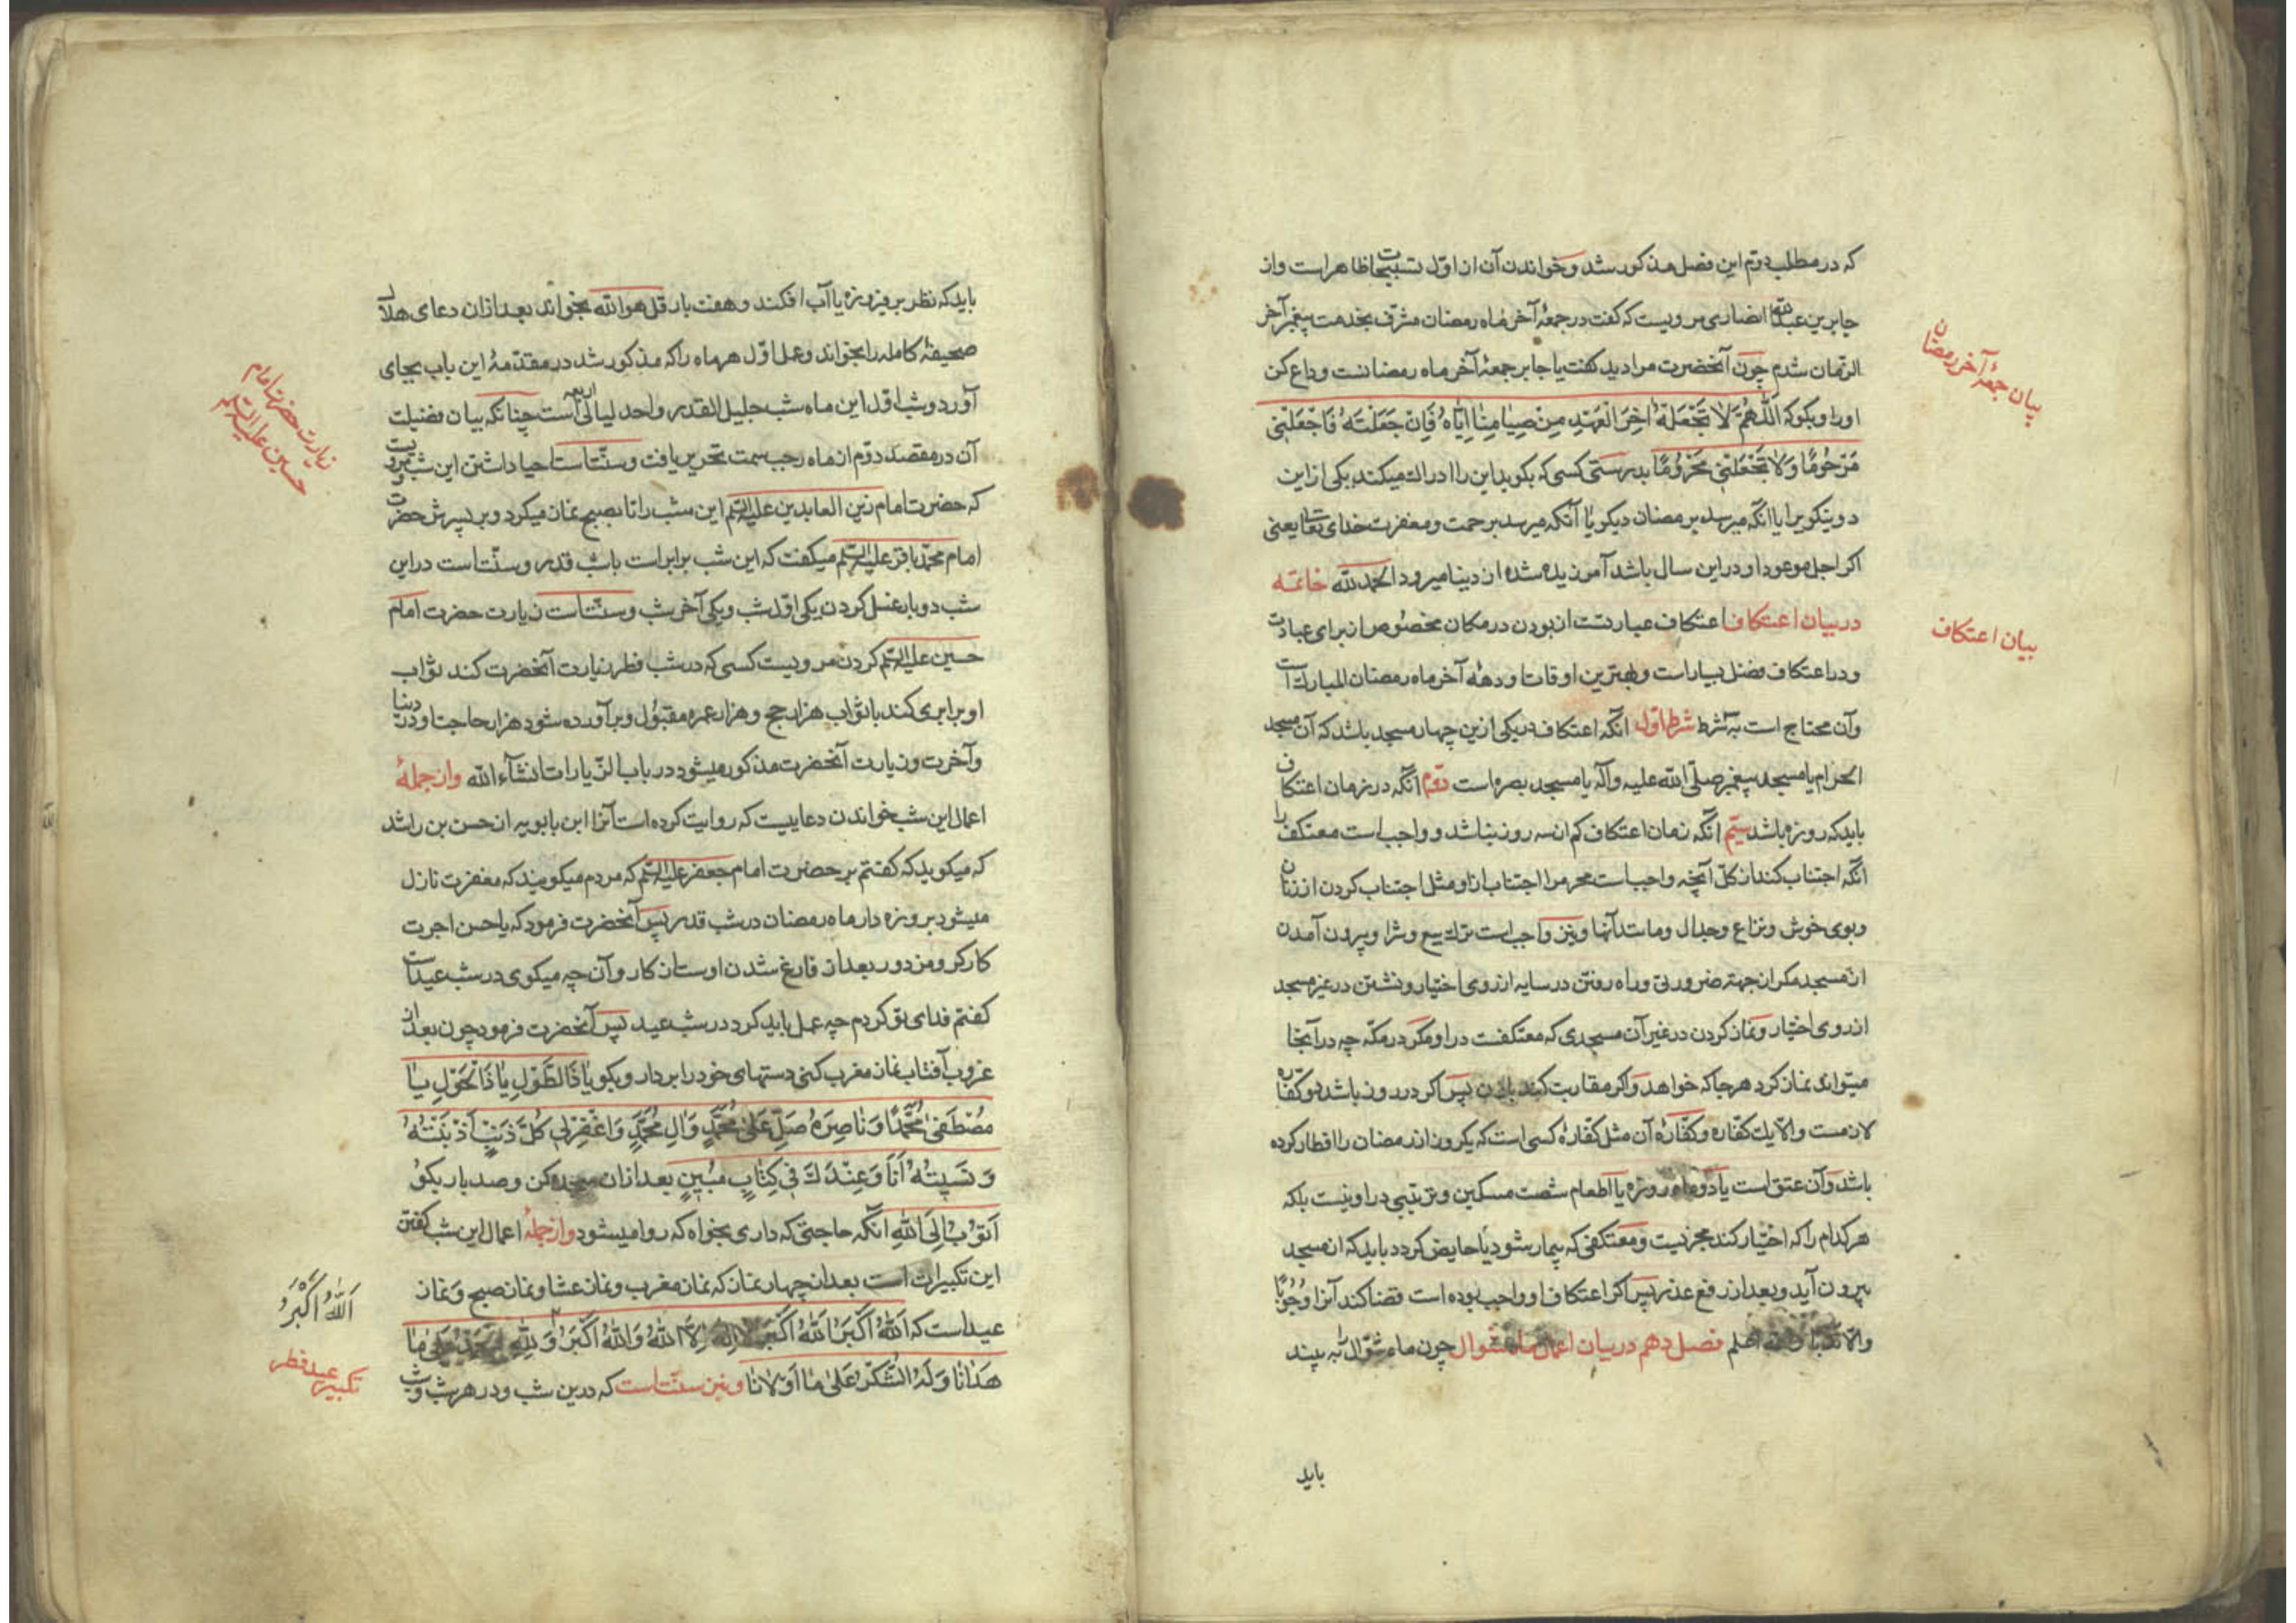 که در مطلب دوم این فصل مذکور شد و خواندن آن از اول تسبیحات ظاهر است و از
جابر بن عبدالله انصاری مرویست که گفت در جمعهٔ آخر ماه رمضان مشرف بخدمت پیغمبر آخر
الزمان شدم چون آنحضرت مرا دید گفت یا جابر جمعهٔ آخر ماه رمضانست وداع کن
او را و بکو که اَللّٰهُمَّ لَا تَجْعَلْهُ اٰخِرَ الْعَهْدِ مِنْ صِیَامِنَا اِیَّاهُ فَاِنْ جَعَلْتَهُ فَاجْعَلْنِی
مَرْحُومًا وَلَا تَجْعَلْنِی مَحْرُومًا بدرستی کسی که بکوید این را ادراک میکند یکی از این
دو نیکویی را یا آنکه میرسد برمضان دیکر یا آنکه میرسد برحمت و مغفرت خدای تعالی یعنی
اکر اجل موعود او در این سال باشد آمرزیده شده از دنیا میرود الحمد لله خاتمه
در بیان اعتکاف اعتکاف عبارتست از بودن در مکان مخصوص از برای عبادت
و در اعتکاف فضل بسیار است و بهترین اوقات او دههٔ آخر ماه رمضان المبارک است
و آن محتاج است به شرط شرط اول آنکه اعتکاف در یکی ازین چهار مسجد باشد که آن مسجد
الحرام یا مسجد پیغمبر صلی الله علیه وآله یا مسجد بصره است دوم آنکه در زمان اعتکاف
باید که روزه باشد سیم آنکه زمان اعتکاف کم از سه روز نباشد و واجب است معتکف را
آنکه اجتناب کند از کل آنچه واجب است محرم را اجتناب از او مثل اجتناب کردن از زنان
و بوی خوش و نزاع و جدال و مانند آنها و نیز واجب است ترک بیع و شرا و بیرون آمدن
از مسجد مکر از جهتهٔ ضرورتی و راه رفتن در سایه از روی اختیار و نشستن در غیر مسجد
از روی اختیار و نماز کردن در غیر آن مسجدی که معتکفست در او مکر در مکه چه در آنجا
میتواند نماز کرد هر جا که خواهد و اکر مقاربت کند با زن پس اکر در روز باشد دو کفاره
لازمست والا یک کفاره و کفارهٔ آن مثل کفارهٔ کسی است که یکروز از رمضان را افطار کرده
باشد و آن عتق است یا دو ماه روزه یا اطعام شصت مسکین و ترتیبی در او نیست بلکه
هر کدام را که اختیار کند مجزیست و معتکفی که بیمار شود یا حایض کردد باید که از مسجد
بیرون آید و بعد از رفع عذر پس اکر اعتکاف او واجب بوده است قضا کند آنرا وجوبًا
والا ندبًا والله اعلم فصل دهم در بیان اعمال ماه شوال چون ماه شوال را به بیند
باید
بیان جمعهٔ آخر رمضان
بیان اعتکاف
باید که نظر بر فیروزه یا آب افکند و هفت بار قل هو الله بخواند بعد از ان دعای هلال
صحیفهٔ کامله را بخواند و عمل اول هر ماه را که مذکور شد در مقدمهٔ این باب بجای
آورد و شب اول این ماه شب جلیل القدر و احد لیالی اربعه است چنانکه بیان فضیلت
آن در مقصد دوم از ماه رجب سمت تحریر یافت و سنت است احیا داشتن این شب مرویست
که حضرت امام زین العابدین علیه السلم این شب را تا بصبح نماز میکرد و بر پسرش حضرت
امام محمد باقر علیه السلم میکفت که این شب برابر است با شب قدر و سنت است در این
شب دو بار غسل کردن یکی اول شب و یکی آخر شب و سنت است زیارت حضرت امام
حسین علیه السلم کردن مرویست کسی که در شب فطر زیارت آنحضرت کند ثواب
او برابری کند با ثواب هزار حج و هزار عمره مقبول و برآورده شود هزار حاجت او در دنیا
و آخرت و زیارت آنحضرت مذکور میشود در باب الزیارات انشاء الله و از جملهٔ
اعمال این شب خواندن دعاییست که روایت کرده است آنرا ابن بابویه از حسن بن راشد
که میکوید که کفتم بر حضرت امام جعفر علیه السلم که مردم میکویند که مغفرت نازل
میشود بر روزه دار ماه رمضان در شب قدر پس آنحضرت فرمود که یا حسن اجرت
کارکر و مزدور بعد از فارغ شدن اوست از کار و آن چه میکوی در شب عید است
کفتم فدای تو کردم چه عمل باید کرد در شب عید پس آنحضرت فرمود چون بعد از
غروب آفتاب نماز مغرب کنی دستهای خود را بردار و بکو یَا ذَا الطَّوْلِ یَا ذَا الْحَوْلِ یَا
مُصْطَفِیَ مُحَمَّدٍ وَنَاصِرَهُ صَلِّ عَلٰی مُحَمَّدٍ وَاٰلِ مُحَمَّدٍ وَاغْفِرْ لِی کُلَّ ذَنْبٍ اَذْنَبْتُهُ
وَنَسِیتُهُ اَنَا وَعِنْدَكَ فِی کِتَابٍ مُبِینٍ بعد از ان سجده کن و صد بار بکو
اَتُوبُ اِلَی اللّٰهِ آنکه حاجتی که داری بخواه که روا میشود و از جملهٔ اعمال این شب کفتن
این تکبیرات است بعد از چهار نماز که نماز مغرب و نماز عشا و نماز صبح و نماز
عید است که اَللّٰهُ اَکْبَرُ اَللّٰهُ اَکْبَرُ لَا اِلٰهَ اِلَّا اللّٰهُ وَاللّٰهُ اَکْبَرُ وَلِلّٰهِ الْحَمْدُ عَلٰی مَا
هَدَانَا وَلَهُ الشُّکْرُ عَلٰی مَا اَوْلَانَا و نیز سنت است که درین شب و در هر شب و
زیارت حضرت امام
حسین علیه السلم
اَللّٰهُ اَکْبَرُ
تکبیر عید فطر